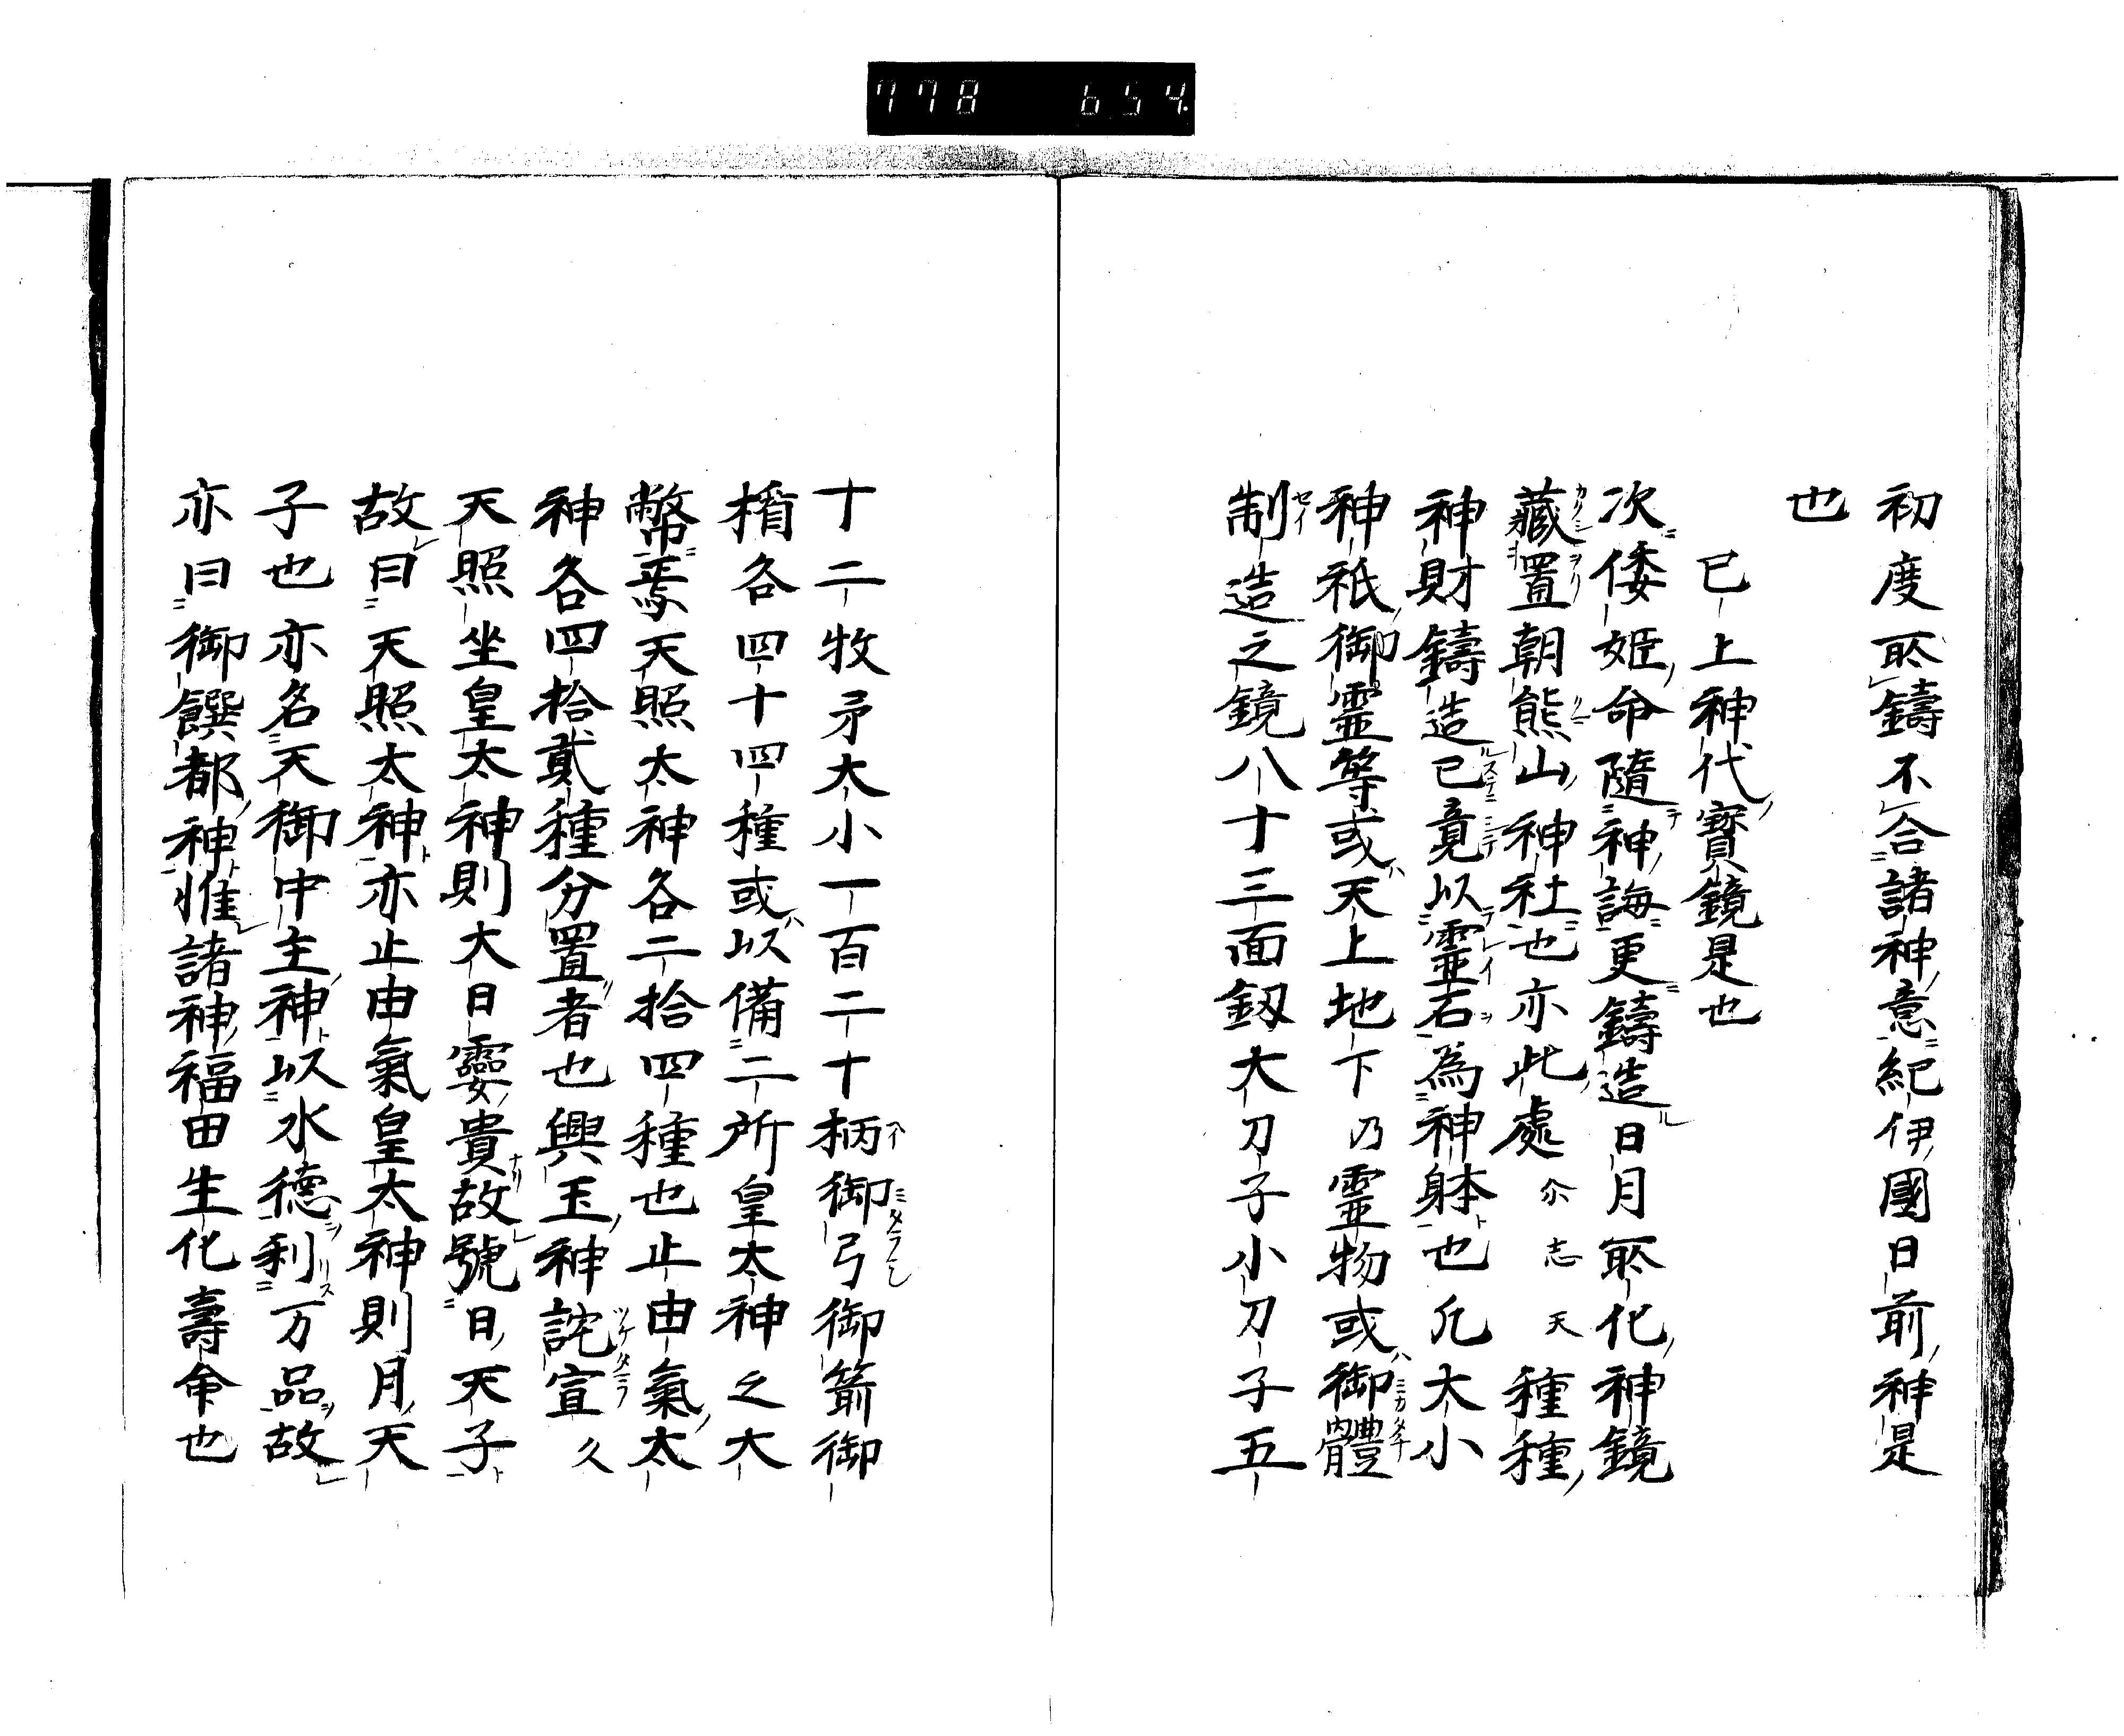 778 654
初度所鑄不合諸神意紀伊國日前神是
也
已上神代寳鏡是也
次倭姫命隨神誨更鑄造日月所化神鏡
藏置朝熊山神社也亦此處尒志天種種
神財鑄造已竟以靈石為神躰也凡大小
神祇御靈等或天上地下乃靈物或御體
制造之鏡八十三面釼大刀子小刀子五
十二牧矛大小一百二十柄御弓御箭御
楯各四十四種或以備二所皇太神之大
幣焉天照太神各二拾四種也止由氣太
神各四拾貳種分置者也興玉神詫宣久
天照坐皇太神則大日孁貴故號日天子
故曰天照太神亦止由氣皇太神則月天
子也亦名天御中主神以水德利万品故
亦曰御饌都神惟諸神福田生化壽命也